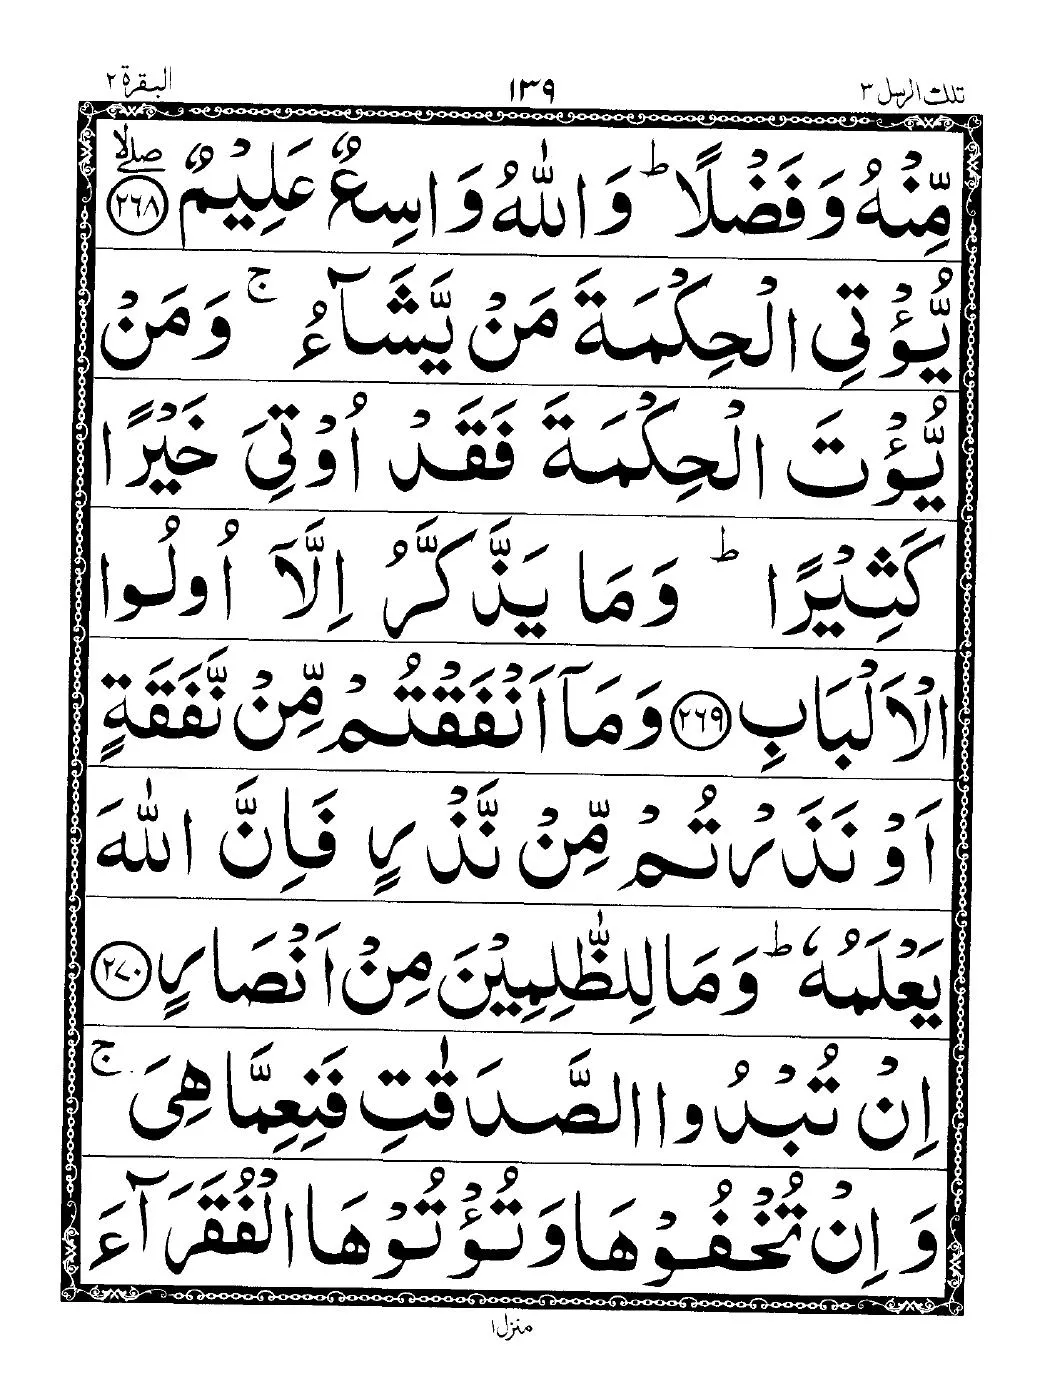 تلك الرسل ٣
١٣٩
البقرة ٢
مِّنْهُ وَفَضْلًا ؕ وَاللّٰهُ وَاسِعٌ عَلِيْمٌ ۖۙ ﴿٢٦٨﴾
يُّؤْتِى الْحِكْمَةَ مَنْ يَّشَآءُ ۚ وَمَنْ
يُّؤْتَ الْحِكْمَةَ فَقَدْ اُوْتِىَ خَيْرًا
كَثِيْرًا ؕ وَمَا يَذَّكَّرُ اِلَّاۤ اُولُوا
الْاَلْبَابِ ﴿٢٦٩﴾ وَمَاۤ اَنْفَقْتُمْ مِّنْ نَّفَقَةٍ
اَوْ نَذَرْتُمْ مِّنْ نَّذْرٍ فَاِنَّ اللّٰهَ
يَعْلَمُهٗ ؕ وَمَا لِلظّٰلِمِيْنَ مِنْ اَنْصَارٍ ﴿٢٧٠﴾
اِنْ تُبْدُوا الصَّدَقٰتِ فَنِعِمَّا هِىَ ۚ
وَاِنْ تُخْفُوْهَا وَتُؤْتُوْهَا الْفُقَرَآءَ
منزل ١